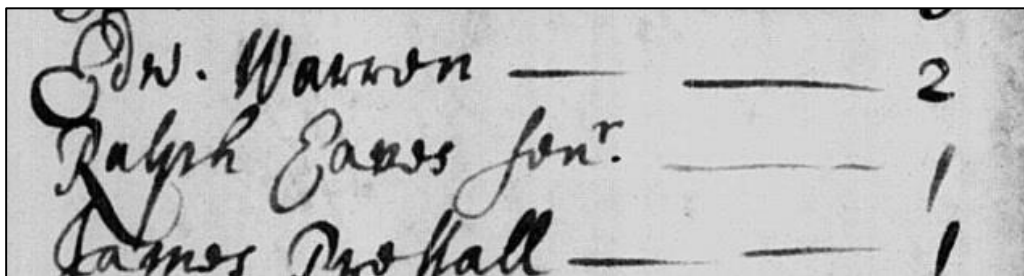 Edw. Warren — — 2
Ralph Eaves senr. — 1
James Prestall — — 1